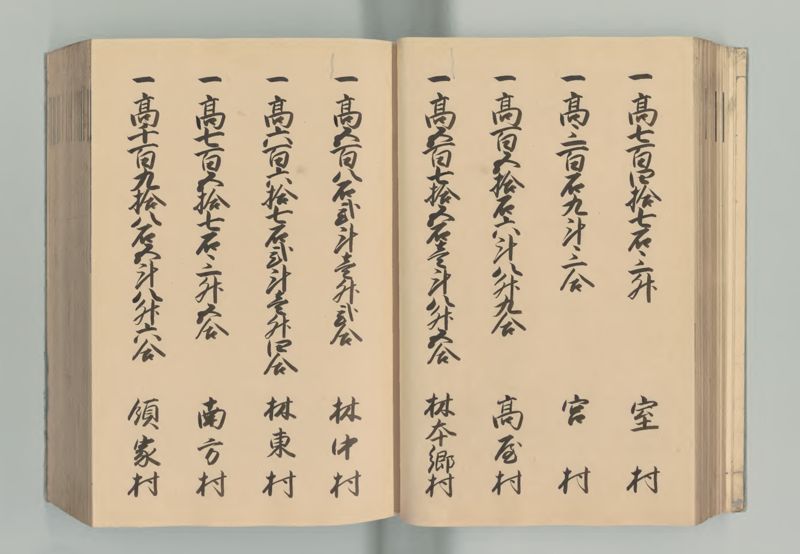 一高七百四拾七石三升 室村
一高三百石九斗三合 宮村
一高百五拾石六斗八升九合 高屋村
一高五百七拾五石壱斗八升五合 林本郷村
一高五百八石弐斗壱升弐合 林中村
一高六百六拾七石弐斗壱升四合 林東村
一高七百五拾七石三升五合 南方村
一高千百九拾八石五斗八升六合 領家村